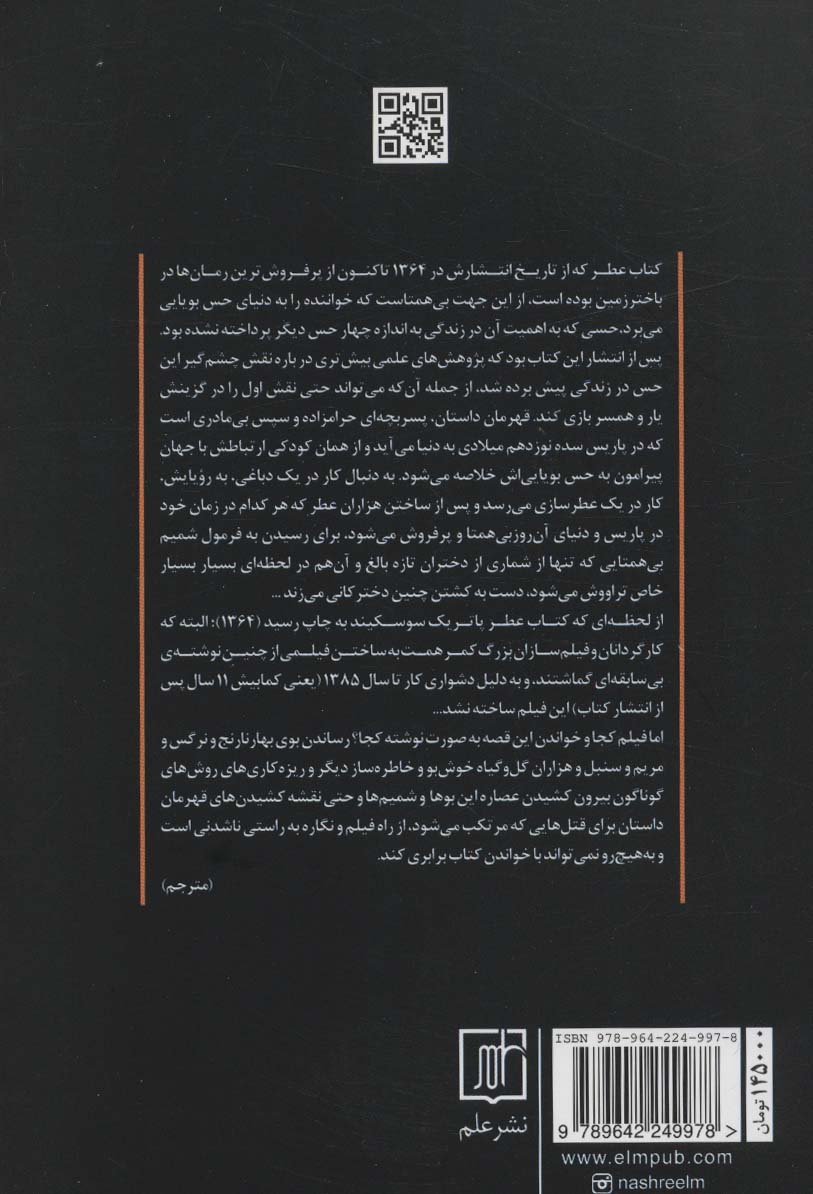 کتاب عطر که از تاریخ انتشارش در ۱۳۶۴ تاکنون از پرفروش‌ترین رمان‌ها در
باخترزمین بوده است، از این جهت بی‌همتاست که خواننده را به دنیای حس بویایی
می‌برد، حسی که به اهمیت آن در زندگی به اندازه چهار حس دیگر پرداخته نشده بود.
پس از انتشار این کتاب بود که پژوهش‌های علمی بیش‌تری درباره نقش چشم‌گیر این
حس در زندگی پیش برده شد، از جمله آن‌که می‌تواند حتی نقش اول را در گزینش
یار و همسر بازی کند. قهرمان داستان، پسربچه‌ای حرامزاده و سپس بی‌مادری است
که در پاریس سده نوزدهم میلادی به دنیا می‌آید و از همان کودکی ارتباطش با جهان
پیرامون به حس بویایی‌اش خلاصه می‌شود. به دنبال کار در یک دباغی، به رؤیایش،
کار در یک عطرسازی می‌رسد و پس از ساختن هزاران عطر که هر کدام در زمان خود
در پاریس و دنیای آن‌روز بی‌همتا و پرفروش می‌شود، برای رسیدن به فرمول شمیم
بی‌همتایی که تنها از شماری از دختران تازه بالغ و آن‌هم در لحظه‌ای بسیار بسیار
خاص تراووش می‌شود، دست به کشتن چنین دخترکانی می‌زند ...
از لحظه‌ای که کتاب عطر پاتریک سوسکیند به چاپ رسید (۱۳۶۴)؛ البته که
کارگردانان و فیلم‌سازان بزرگ کمر همت به ساختن فیلمی از چنین نوشته‌ی
بی‌سابقه‌ای گماشتند، و به دلیل دشواری کار تا سال ۱۳۸۵ (یعنی کمابیش ۱۱ سال پس
از انتشار کتاب) این فیلم ساخته نشد...
اما فیلم کجا و خواندن این قصه به صورت نوشته کجا؟ رساندن بوی بهارنارنج و نرگس و
مریم و سنبل و هزاران گل و گیاه خوش‌بو و خاطره‌ساز دیگر و ریزه‌کاری‌های روش‌های
گوناگون بیرون کشیدن عصاره این بوها و شمیم‌ها و حتی نقشه کشیدن‌های قهرمان
داستان برای قتل‌هایی که مرتکب می‌شود، از راه فیلم و نگاره به راستی ناشدنی است
و به‌هیچ‌رو نمی‌تواند با خواندن کتاب برابری کند.
(مترجم)
نشر علم
ISBN 978-964-224-997-8
9 789642 249978 >
۱۴۵۰۰۰ تومان
www.elmpub.com
nashreelm